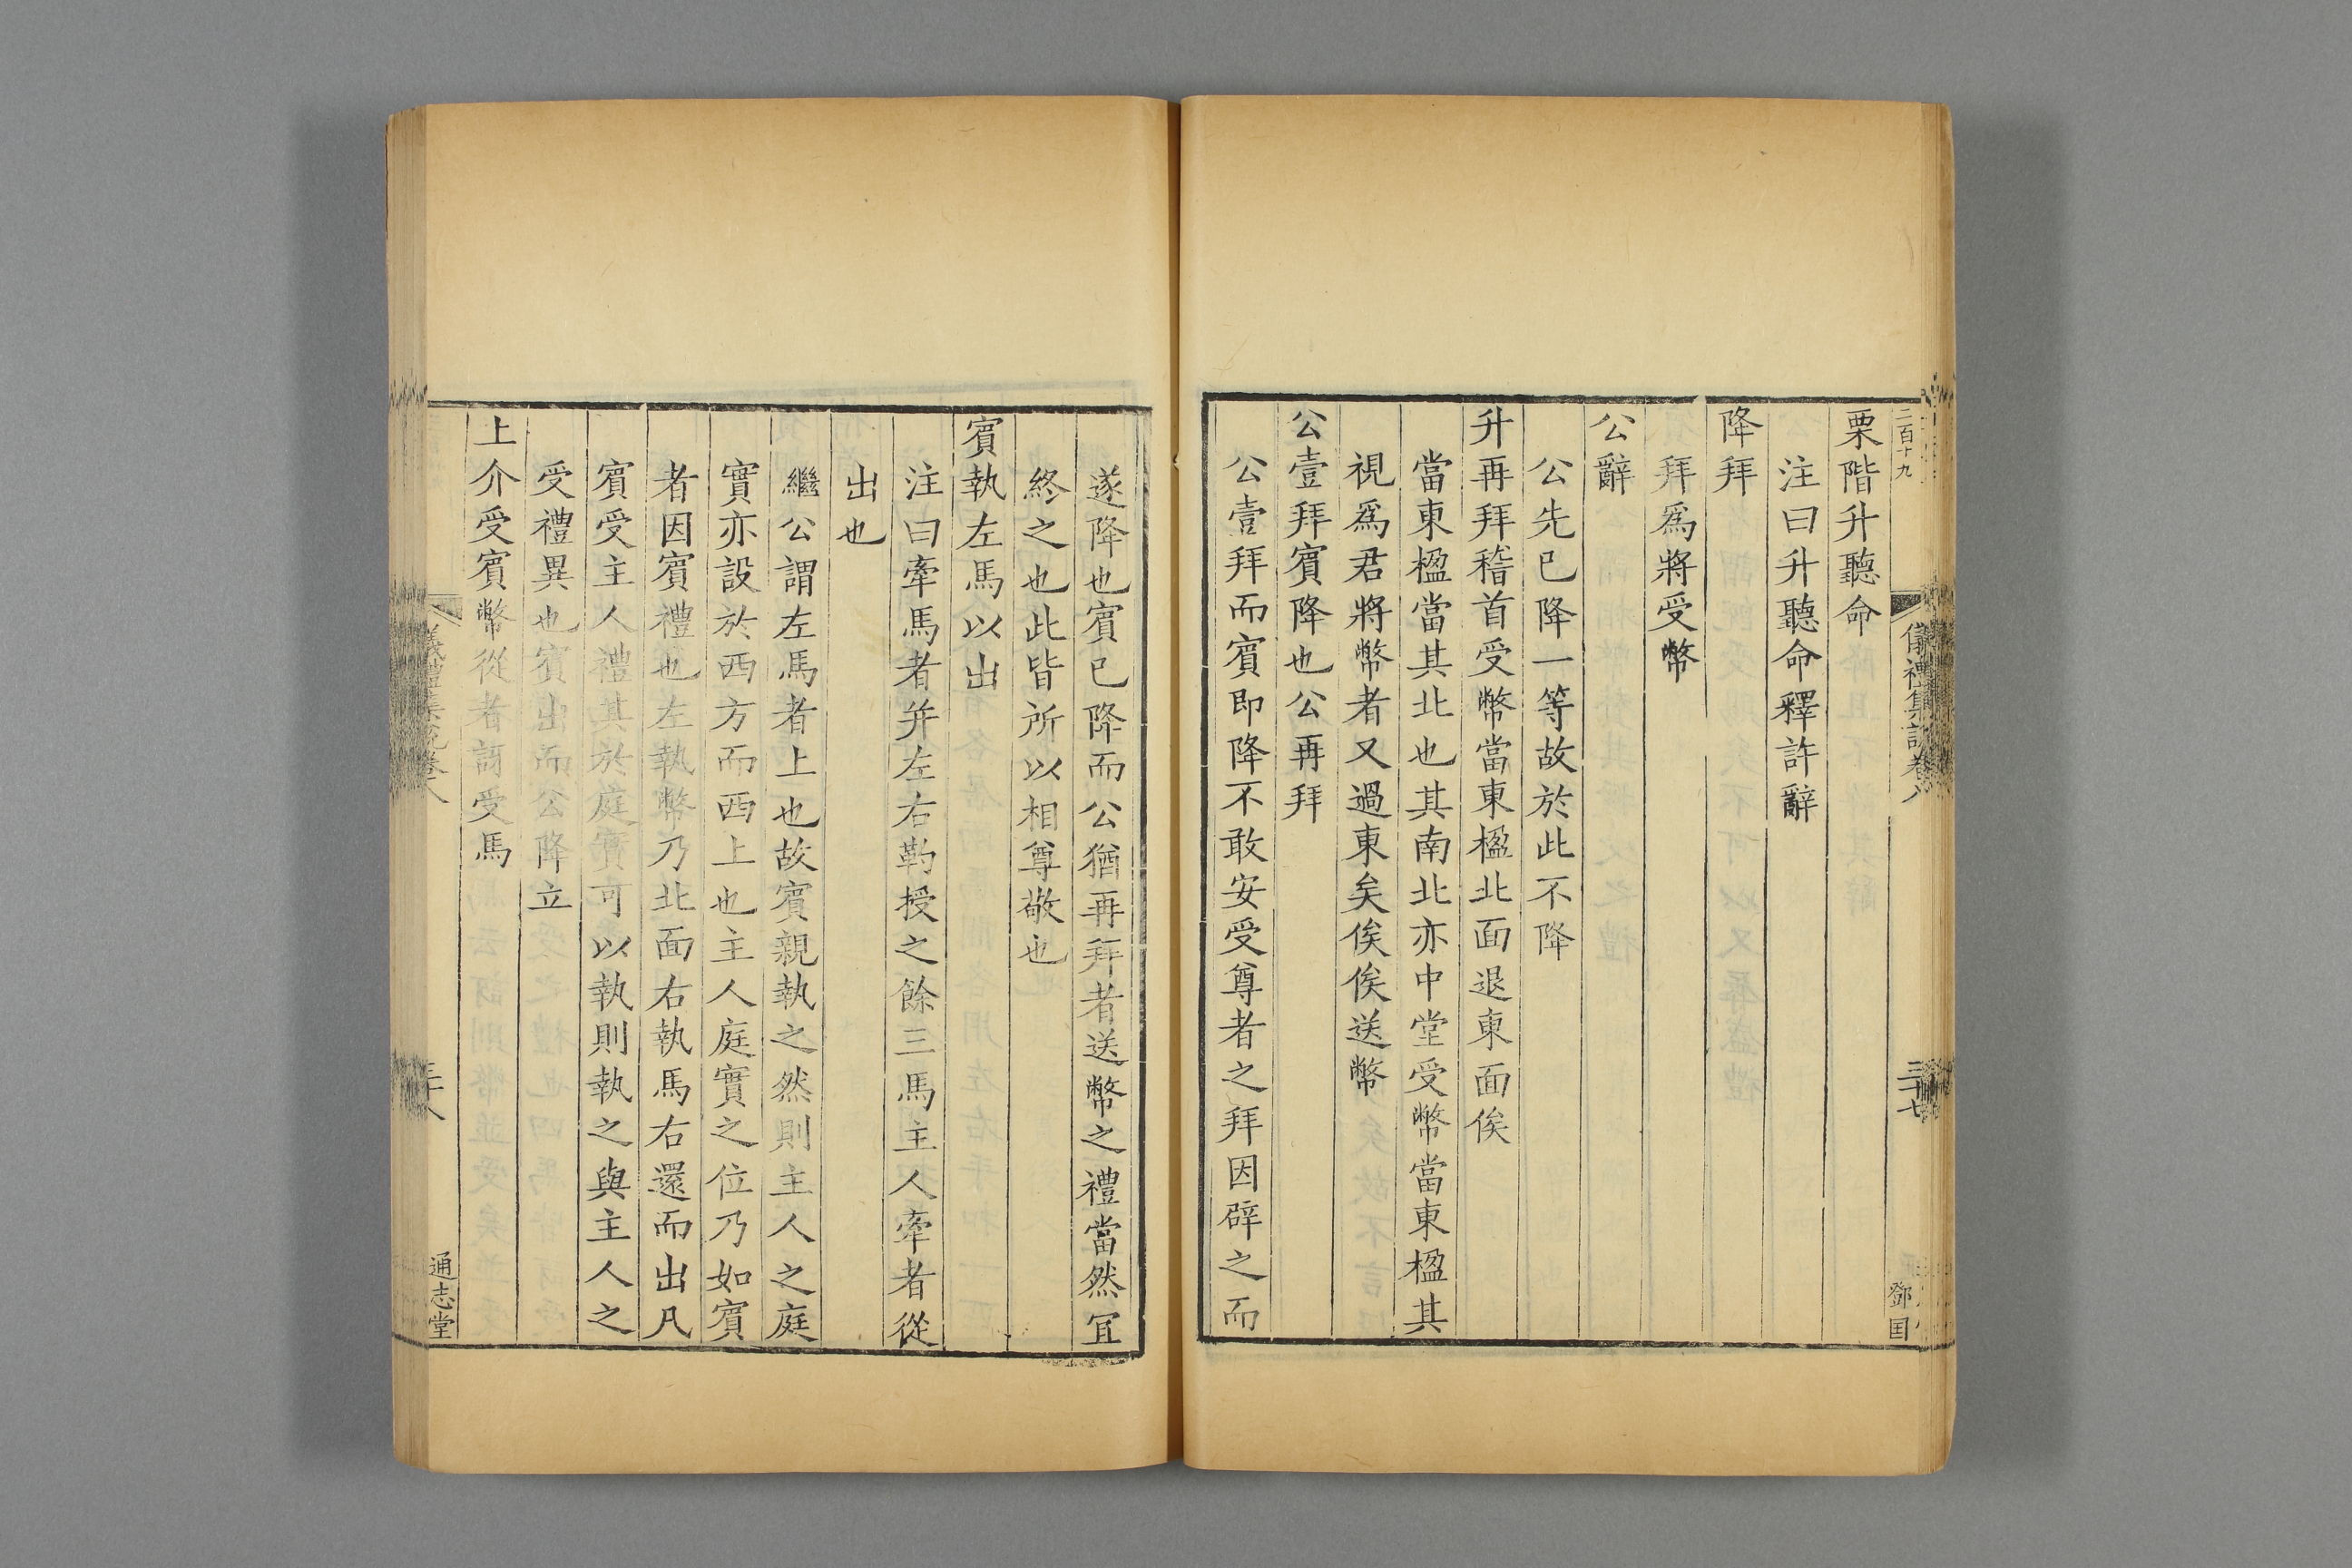 二百十九
儀禮集說卷八
三十七
鄧国
栗階升聽命
注曰升聽命釋許辭
降拜
拜爲將受幣
公辭
公先已降一等故於此不降
升再拜稽首受幣當東楹北面退東面俟
當東楹當其北也其南北亦中堂受幣當東楹其
視爲君將幣者又過東矣俟俟送幣
公壹拜賓降也公再拜
公壹拜而賓即降不敢安受尊者之拜因辟之而
遂降也賓已降而公猶再拜者送幣之禮當然冝
終之也此皆所以相尊敬也
賓執左馬以出
注曰牽馬者并左右靮授之餘三馬主人牽者從
出也
繼公謂左馬者上也故賓親執之然則主人之庭
實亦設於西方而西上也主人庭實之位乃如賓
者因賓禮也左執幣乃北面右執馬右還而出凡
賓受主人禮其於庭實可以執則執之與主人之
受禮異也賓出而公降立
上介受賓幣從者訝受馬
儀禮集說卷八
三十八
通志堂